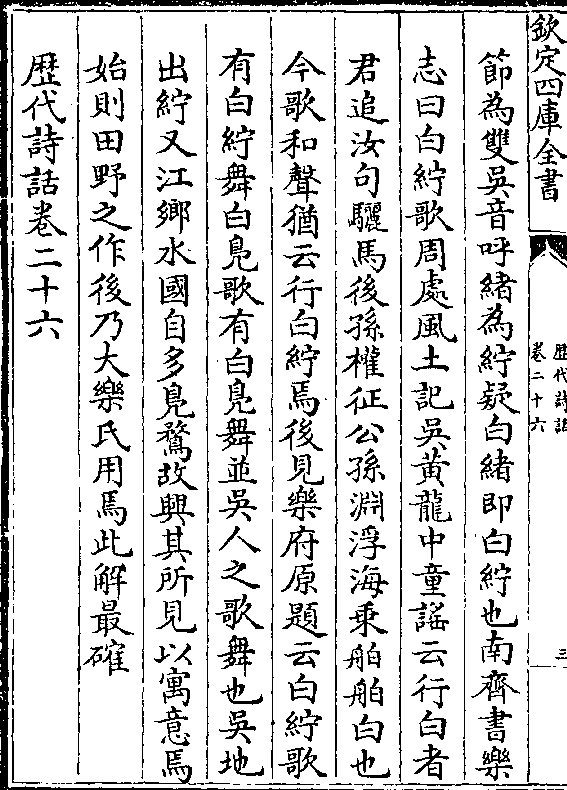 欽定四庫全書
歴代詩話
卷二十六
三
節為雙吳音呼緒為紵疑白緒即白紵也南齊書樂
志曰白紵歌周處風土記吳黃龍中童謡云行白者
君追汝句驪馬後孫權征公孫淵浮海乗舶舶白也
今歌和聲猶云行白紵焉後見樂府原題云白紵歌
有白紵舞白鳬歌有白鳬舞並吳人之歌舞也吳地
出紵又江鄉水國自多鳬鶩故興其所見以寓意焉
始則田野之作後乃大樂氏用焉此解最確
歴代詩話卷二十六